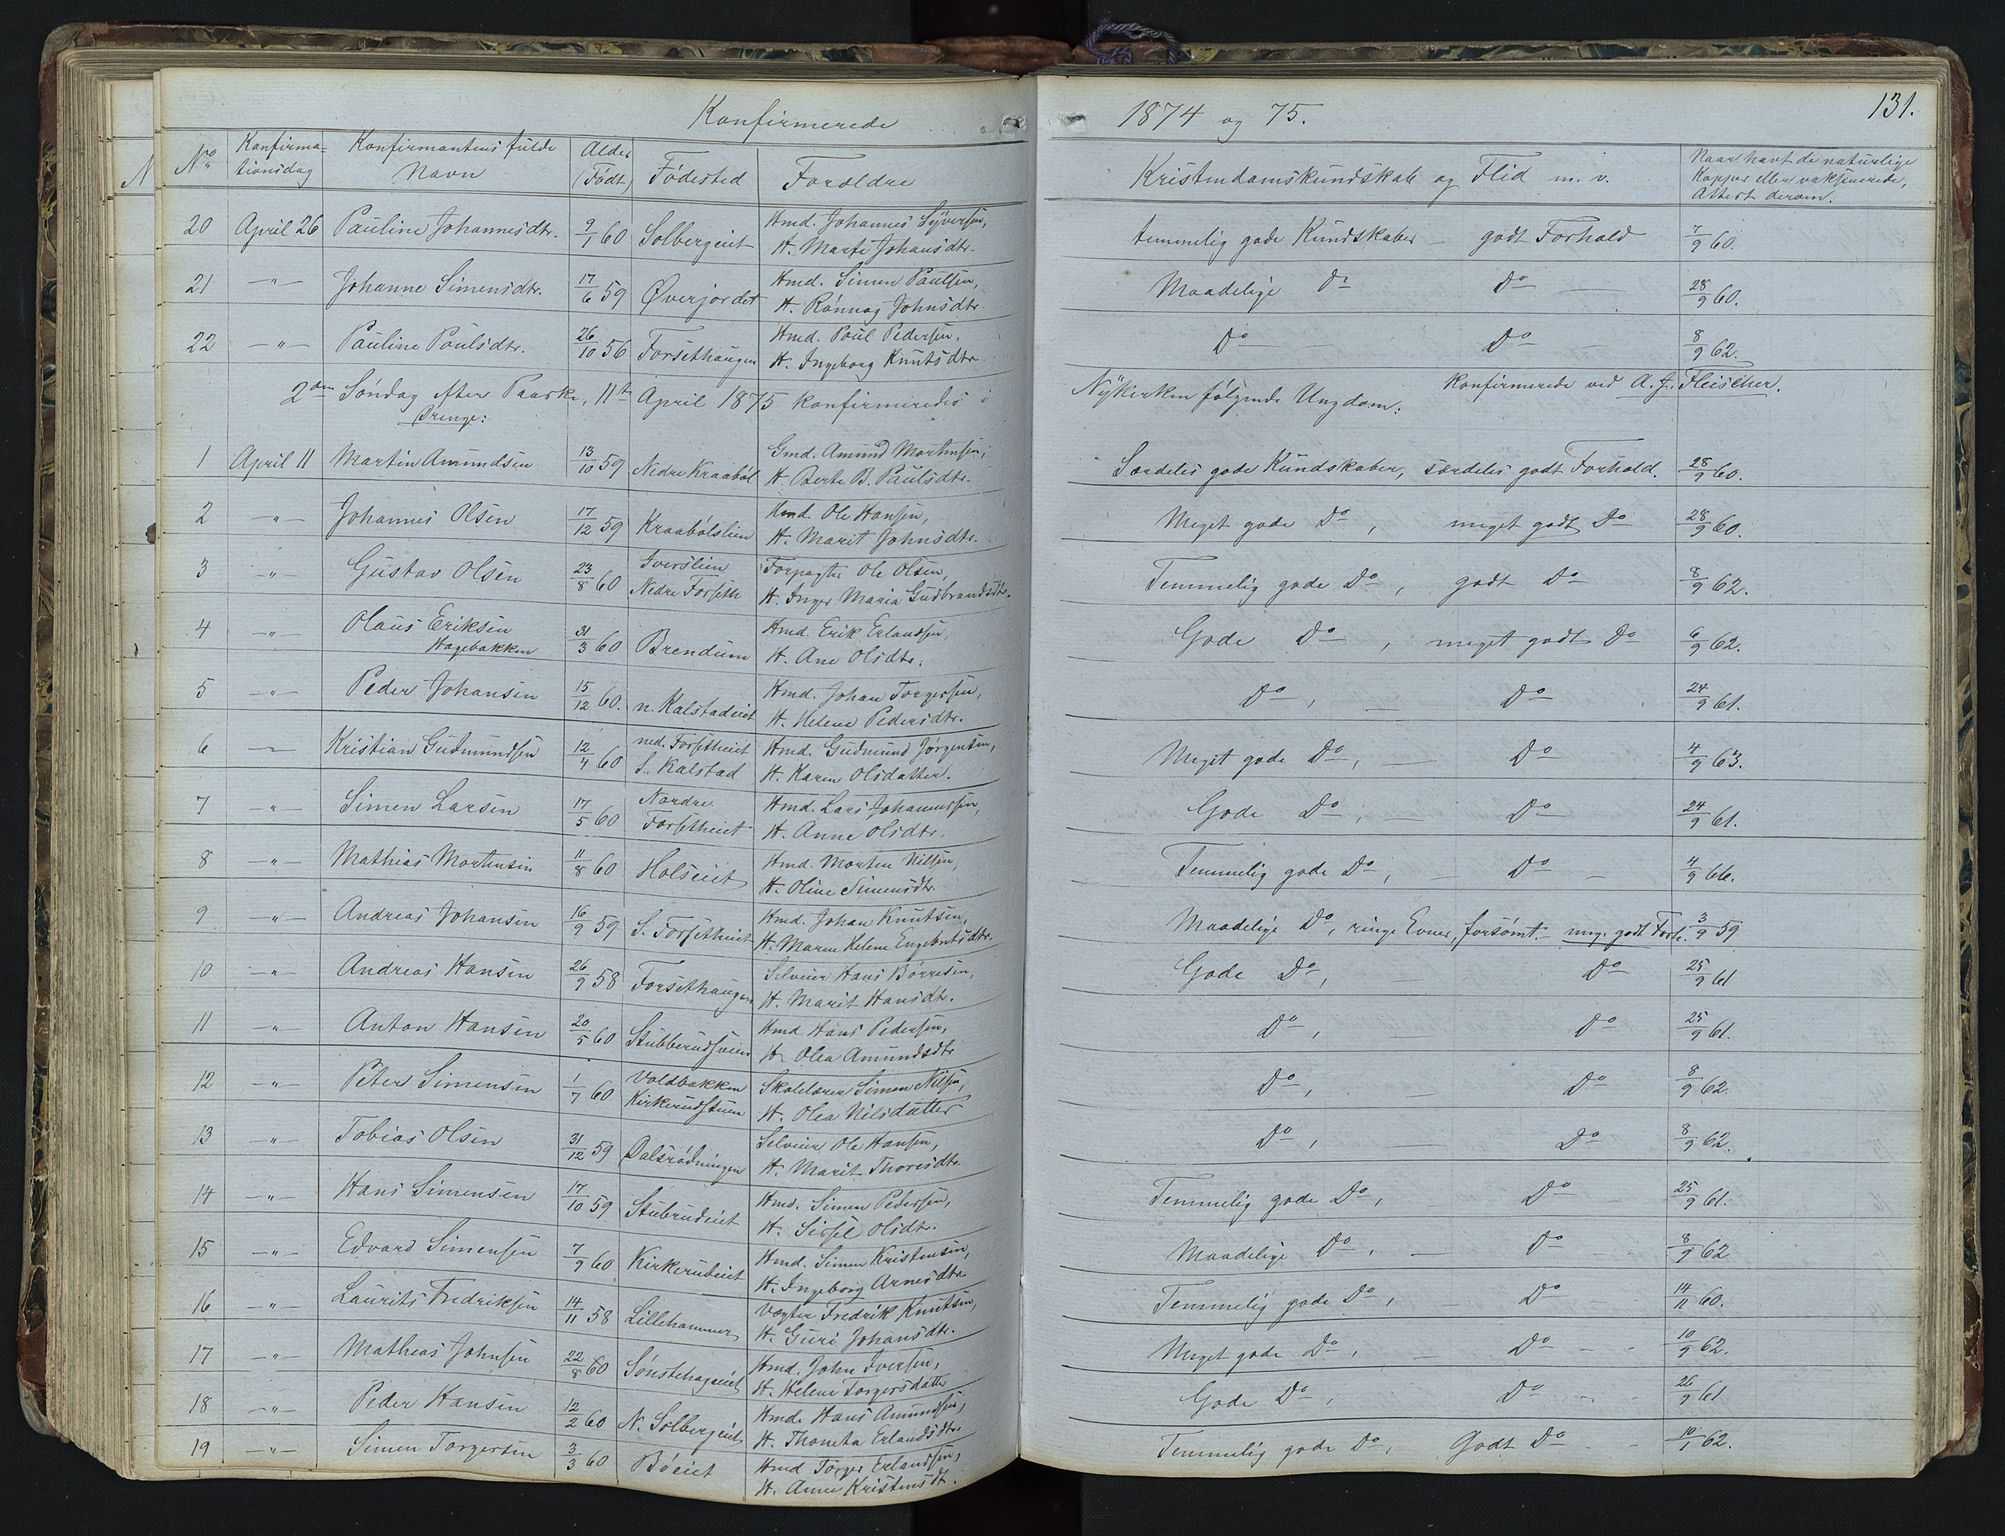 Konfirmerede 1874 og 75. 131.
No Konfirma- Konfirmantens fulde Alder Fødested Forældre Kristendomskundskab og Flid m. v. Naar havt de naturlige
tionsdag Navn (Født) Kopper eller vaksinerede,
Attest derom.
20 April 26 Pauline Johannesdtr. 9/1 60 Solbergeiet Hmd. Johannes Syversen, temmelig gode Kundskaber — godt Forhold 7/9 60.
H. Marte Johansdtr.
21 —"— Johanne Simensdtr. 17/6 59 Øverjordet Hmd. Simen Paulsen, Maadelige Do Do — 28/9 60.
H. Rønnog Johnsdtr.
22 —"— Pauline Poulsdtr. 26/10 56 Forsethaugen Hmd. Poul Pedersen, Do — Do — 8/9 62.
H. Ingeborg Knutsdtr.
2den Søndag efter Paaske, 11te April 1875 konfirmeredes i Nykirken følgende Ungdom: konfirmerede ved A. J. Fleischer.
Drenge:
1 April 11 Martin Amundsen 13/10 59 Nedre Kraabøl Gmd. Amund Mortensen, Særdeles gode Kundskaber, særdeles godt Forhold. 28/9 60.
H. Berte B. Paulsdtr.
2 —"— Johannes Olsen 17/12 59 Kraabølslien Hmd. Ole Hansen, Meget gode Do, meget godt Do 28/9 60.
H. Marit Johnsdtr.
3 —"— Gustav Olsen 23/8 60 Iverslien Forpagter Ole Olsen, Temmelig gode Do, godt Do 8/9 62.
Nedre Forseth H. Inger Maria Gudbrandsdtr.
4 —"— Olaus Eriksen 31/3 60 Brendum Hmd. Erik Erlandsen, Gode Do, meget godt Do 6/9 62.
Hagebakken H. Ane Olsdtr.
5 —"— Peder Johansen 15/12 60. n. Kalstadeiet Hmd. Johan Torgersen, Do, — Do 24/9 61.
H. Helene Pedersdtr.
6 —"— Kristian Gudmundsen 12/4 60 ned. Forsetheiet Hmd. Gudmund Jørgensen, Meget gode Do, — Do 4/9 63.
S. Kalstad H. Karen Olsdatter.
7 —"— Simen Larsen 17/5 60 Nordre Hmd. Lars Johannessen, Gode Do, — Do 24/9 61.
Forsetheiet H. Anne Olsdtr.
8 —"— Mathias Mortensen 11/8 60 Holseiet Hmd. Morten Nilsen, Temmelig gode Do, — Do — 4/9 66.
H. Oline Simensdtr.
9 —"— Andreas Johansen 16/9 59 S. Forsetheiet Hmd. Johan Knutsen, Maadelige Do, ringe Evner, forsømt. — meg. godt Forh. 3/9 59
H. Maren Helene Engebretsdtr.
10 —"— Andreas Hansen 26/9 58 Forsethaugen Selveier Hans Børresen, Gode Do, Do 25/9 61
H. Marit Hansdtr.
11 —"— Anton Hansen 20/5 60 Stubberudsveen Hmd. Hans Pedersen, Do, — Do 25/9 61.
H. Olea Amundsdtr
12 —"— Peter Simensen 1/7 60 Voldbakken Skolelærer Simen Nilsen, Do, — Do 8/9 62.
Kirkerudstuen H. Olea Nilsdatter
13 —"— Tobias Olsen 31/12 59 Dalsrødningen Selveier Ole Hansen, Do, — Do 8/9 62.
H. Marit Thoresdtr.
14 —"— Hans Simensen 17/10 59 Stubrudeiet Hmd. Simen Pedersen, Temmelig gode Do, — Do 25/9 61.
H. Sissel Olsdtr.
15 —"— Edvard Simensen 7/9 60 Kirkerudeiet Hmd. Simen Kristensen, Maadelige Do, — Do 8/9 62
H. Ingeborg Arnesdtr
16 —"— Laurits Fredriksen 14/11 58 Lillehammer Vægter Fredrik Knutsen, Temmelig gode Do, Do 14/11 60.
H. Guri Johansdtr.
17 —"— Mathias Johnsen 22/8 60 Sønstehageeiet Hmd. John Iversen, Meget gode Do, — Do 10/9 62.
H. Helene Torgersdatter
18 —"— Peder Hansen 12/2 60 N. Solbergeiet Hmd. Hans Amundsen, Gode Do, Do 26/9 61
H. Thonetta Erlandsdtr.
19 —"— Simen Torgersen 3/3 60 Bøeiet Hmd Torger Erlandsen, Temmelig gode Do, Godt Do 10/1 62.
H. Anne Kristensdt.